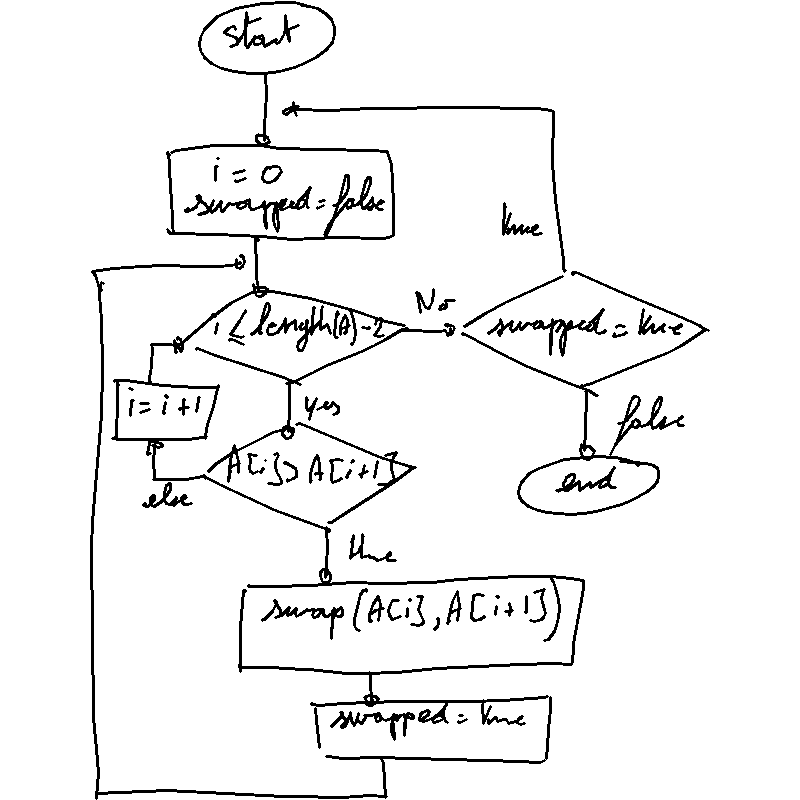 start
i = 0
swapped = false
true
i ≤ length(A)-2
No
swapped = true
i = i+1
yes
false
A[i]>A[i+1]
end
else
true
swap(A[i],A[i+1])
swapped = true